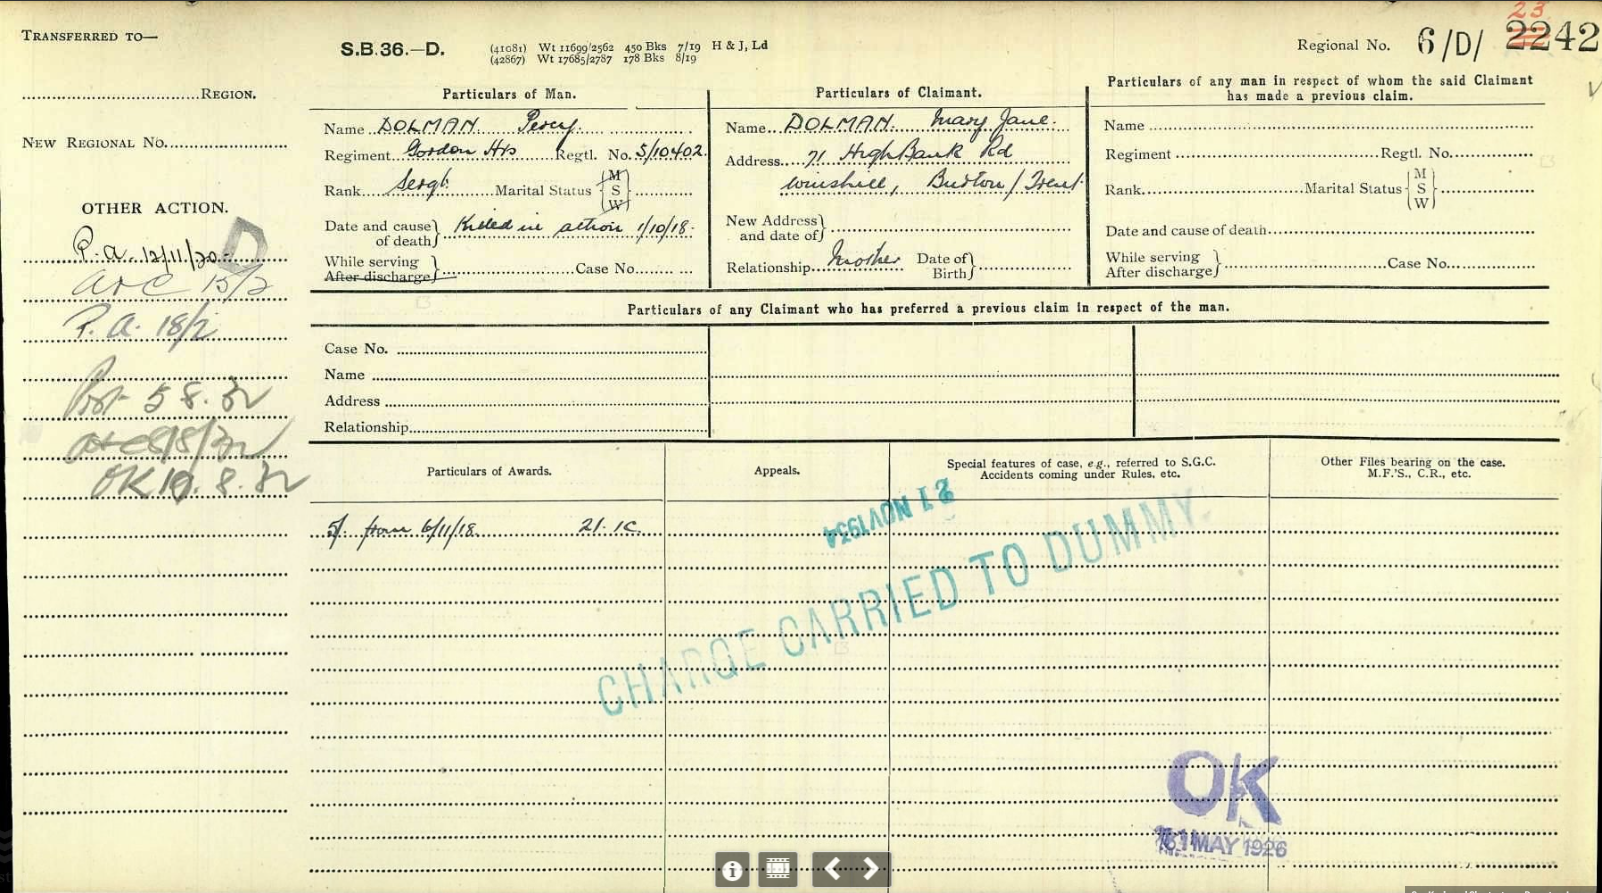 TRANSFERRED TO—
REGION.
NEW REGIONAL No.
OTHER ACTION.
P.a. 12/11/20
D
P.A. 18/2
5 8. 32
OK 10. 8. 32
S.B. 36.—D.
(41081) Wt 11699/2562 450 Bks 7/19 H & J, Ld
(42867) Wt 17685/2787 178 Bks 8/19
Regional No. 6/D/ 2242
23
Particulars of Man.
Name DOLMAN Percy.
Regiment Gordon Hrs Regtl. No. S/10402.
Rank Sergt. Marital Status { M S W }
Date and cause of death} Killed in action 1/10/18.
While serving
After discharge} Case No.
Particulars of Claimant.
Name DOLMAN. Mary Jane.
Address 71 High Bank Rd
Winshill, Burton/Trent
New Address and date of}
Relationship Mother Date of Birth}
Particulars of any man in respect of whom the said Claimant
has made a previous claim.
Name
Regiment Regtl. No.
Rank Marital Status { M S W }
Date and cause of death
While serving
After discharge} Case No.
Particulars of any Claimant who has preferred a previous claim in respect of the man.
Case No.
Name
Address
Relationship
Particulars of Awards.
Appeals.
Special features of case, e.g., referred to S.G.C.
Accidents coming under Rules, etc.
Other Files bearing on the case.
M.F.'S., C.R., etc.
5/. from 6/11/18. 21. 1C.
21 NOV 1934
CHARGE CARRIED TO DUMMY.
OK
MAY 1926